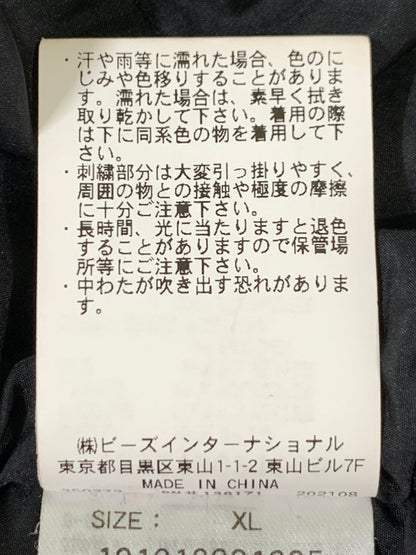 ・汗や雨等に濡れた場合、色のに
じみや色移りすることがありま
す。濡れた場合は、素早く拭き
取り乾かして下さい。着用の際
は下に同系色の物を着用して下
さい。
・刺繍部分は大変引っ掛りやすく、
周囲の物との接触や極度の摩擦
に十分ご注意下さい。
・長時間、光に当たりますと退色
することがありますので保管場
所等にご注意下さい。
・中わたが吹き出す恐れがありま
す。
㈱ビーズインターナショナル
東京都目黒区東山1-1-2 東山ビル7F
MADE IN CHINA
202108
SIZE : XL